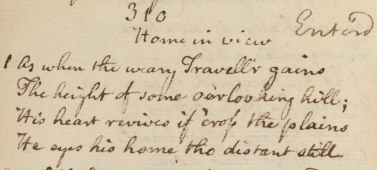 310
Home in view
Enter'd
1 As when the weary Travell'r gains
The height of some o'erlooking hill;
His heart revives if 'cross the plains
He eyes his home, tho distant still